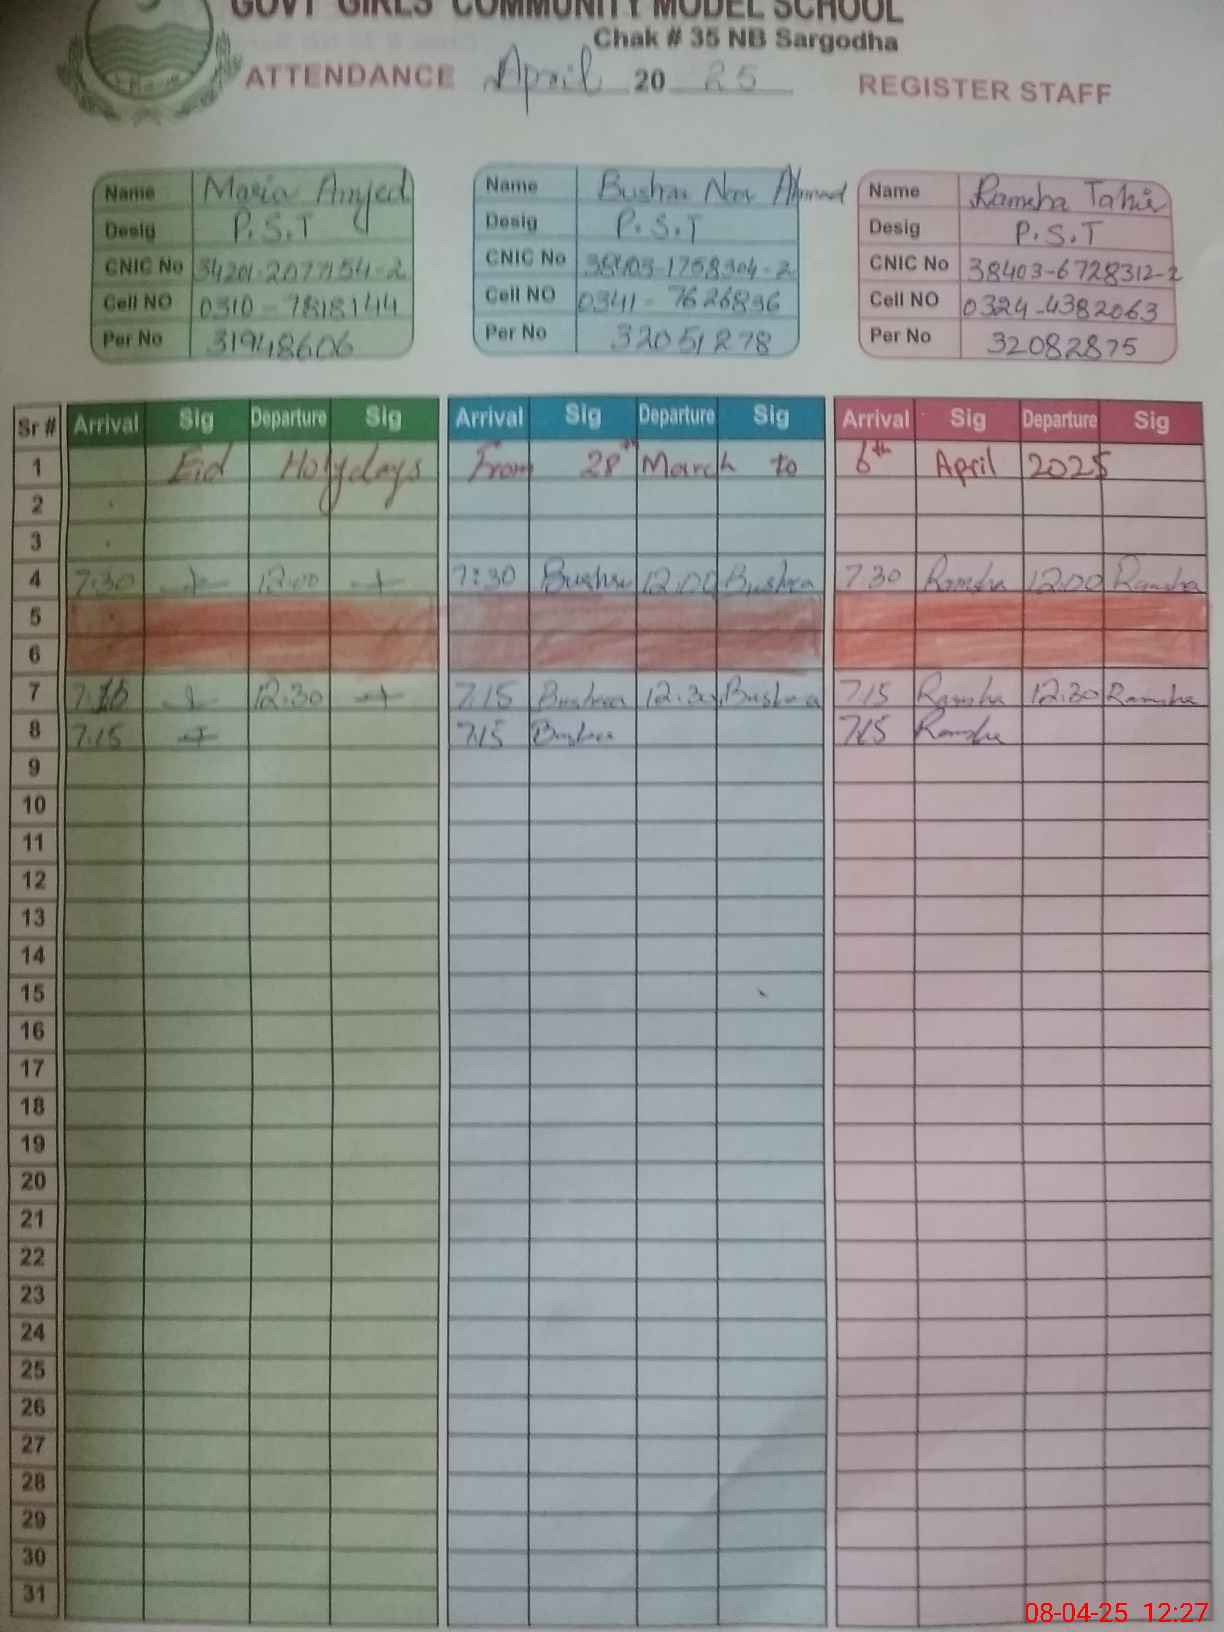 GOVT GIRLS COMMUNITY MODEL SCHOOL
Chak # 35 NB Sargodha
ATTENDANCE April 2025 REGISTER STAFF
Name Maria Amjed
Desig P.S.T
CNIC No 34201-2077154-2
Cell NO 0310-7818144
Per No 31948606
Name Bushra Noor Ahmad
Desig P.S.T
CNIC No 38403-1758304-2
Cell NO 0341-7626836
Per No 32051278
Name Ramsha Tahir
Desig P.S.T
CNIC No 38403-6728312-2
Cell NO 0324-4382063
Per No 32082875
Sr # Arrival Sig Departure Sig Arrival Sig Departure Sig Arrival Sig Departure Sig
1 Eid Holydays From 28th March to 6th April 2025
2
3
4 7:30 12:00 7:30 Bushra 12:00 Bushra 7 30 Ramsha 12:00 Ramsha
5
6
7 7.15 12:30 7.15 Bushra 12.30 Bushra 7.15 Ramsha 12.30 Ramsha
8 7.15 7.15 Bushra 7.15 Ramsha
9
10
11
12
13
14
15
16
17
18
19
20
21
22
23
24
25
26
27
28
29
30
31
08-04-25 12:27